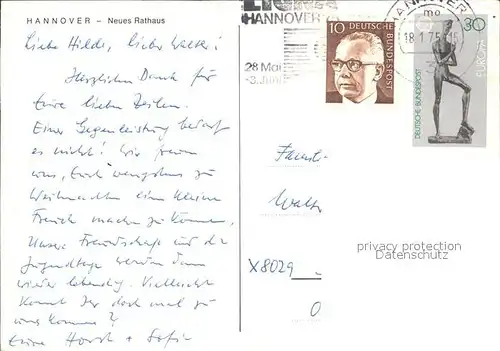 HANNOVER – Neues Rathaus
Liebe Hilde, lieber Walter!
Herzlichen Dank für
Eure lieben Zeilen.
Einer Gegenleistung bedarf
es nicht! Wir freuen
uns, Euch wenigstens zu
Weihnachten eine kleine
Freude machen zu können.
Unsere Freundschaft und die
Jugendtage werden dann
wieder lebendig. Vielleicht
kommt Ihr doch mal zu
uns kommen?
Eure Horst + Sofie
HANNOVER
28 Mai
-3. Juni
10
DEUTSCHE BUNDESPOST
HANNOVER
mo
18.1.75-15
30
EUROPA
DEUTSCHE BUNDESPOST
Famili
Walt
X8029
O
privacy protection
Datenschutz